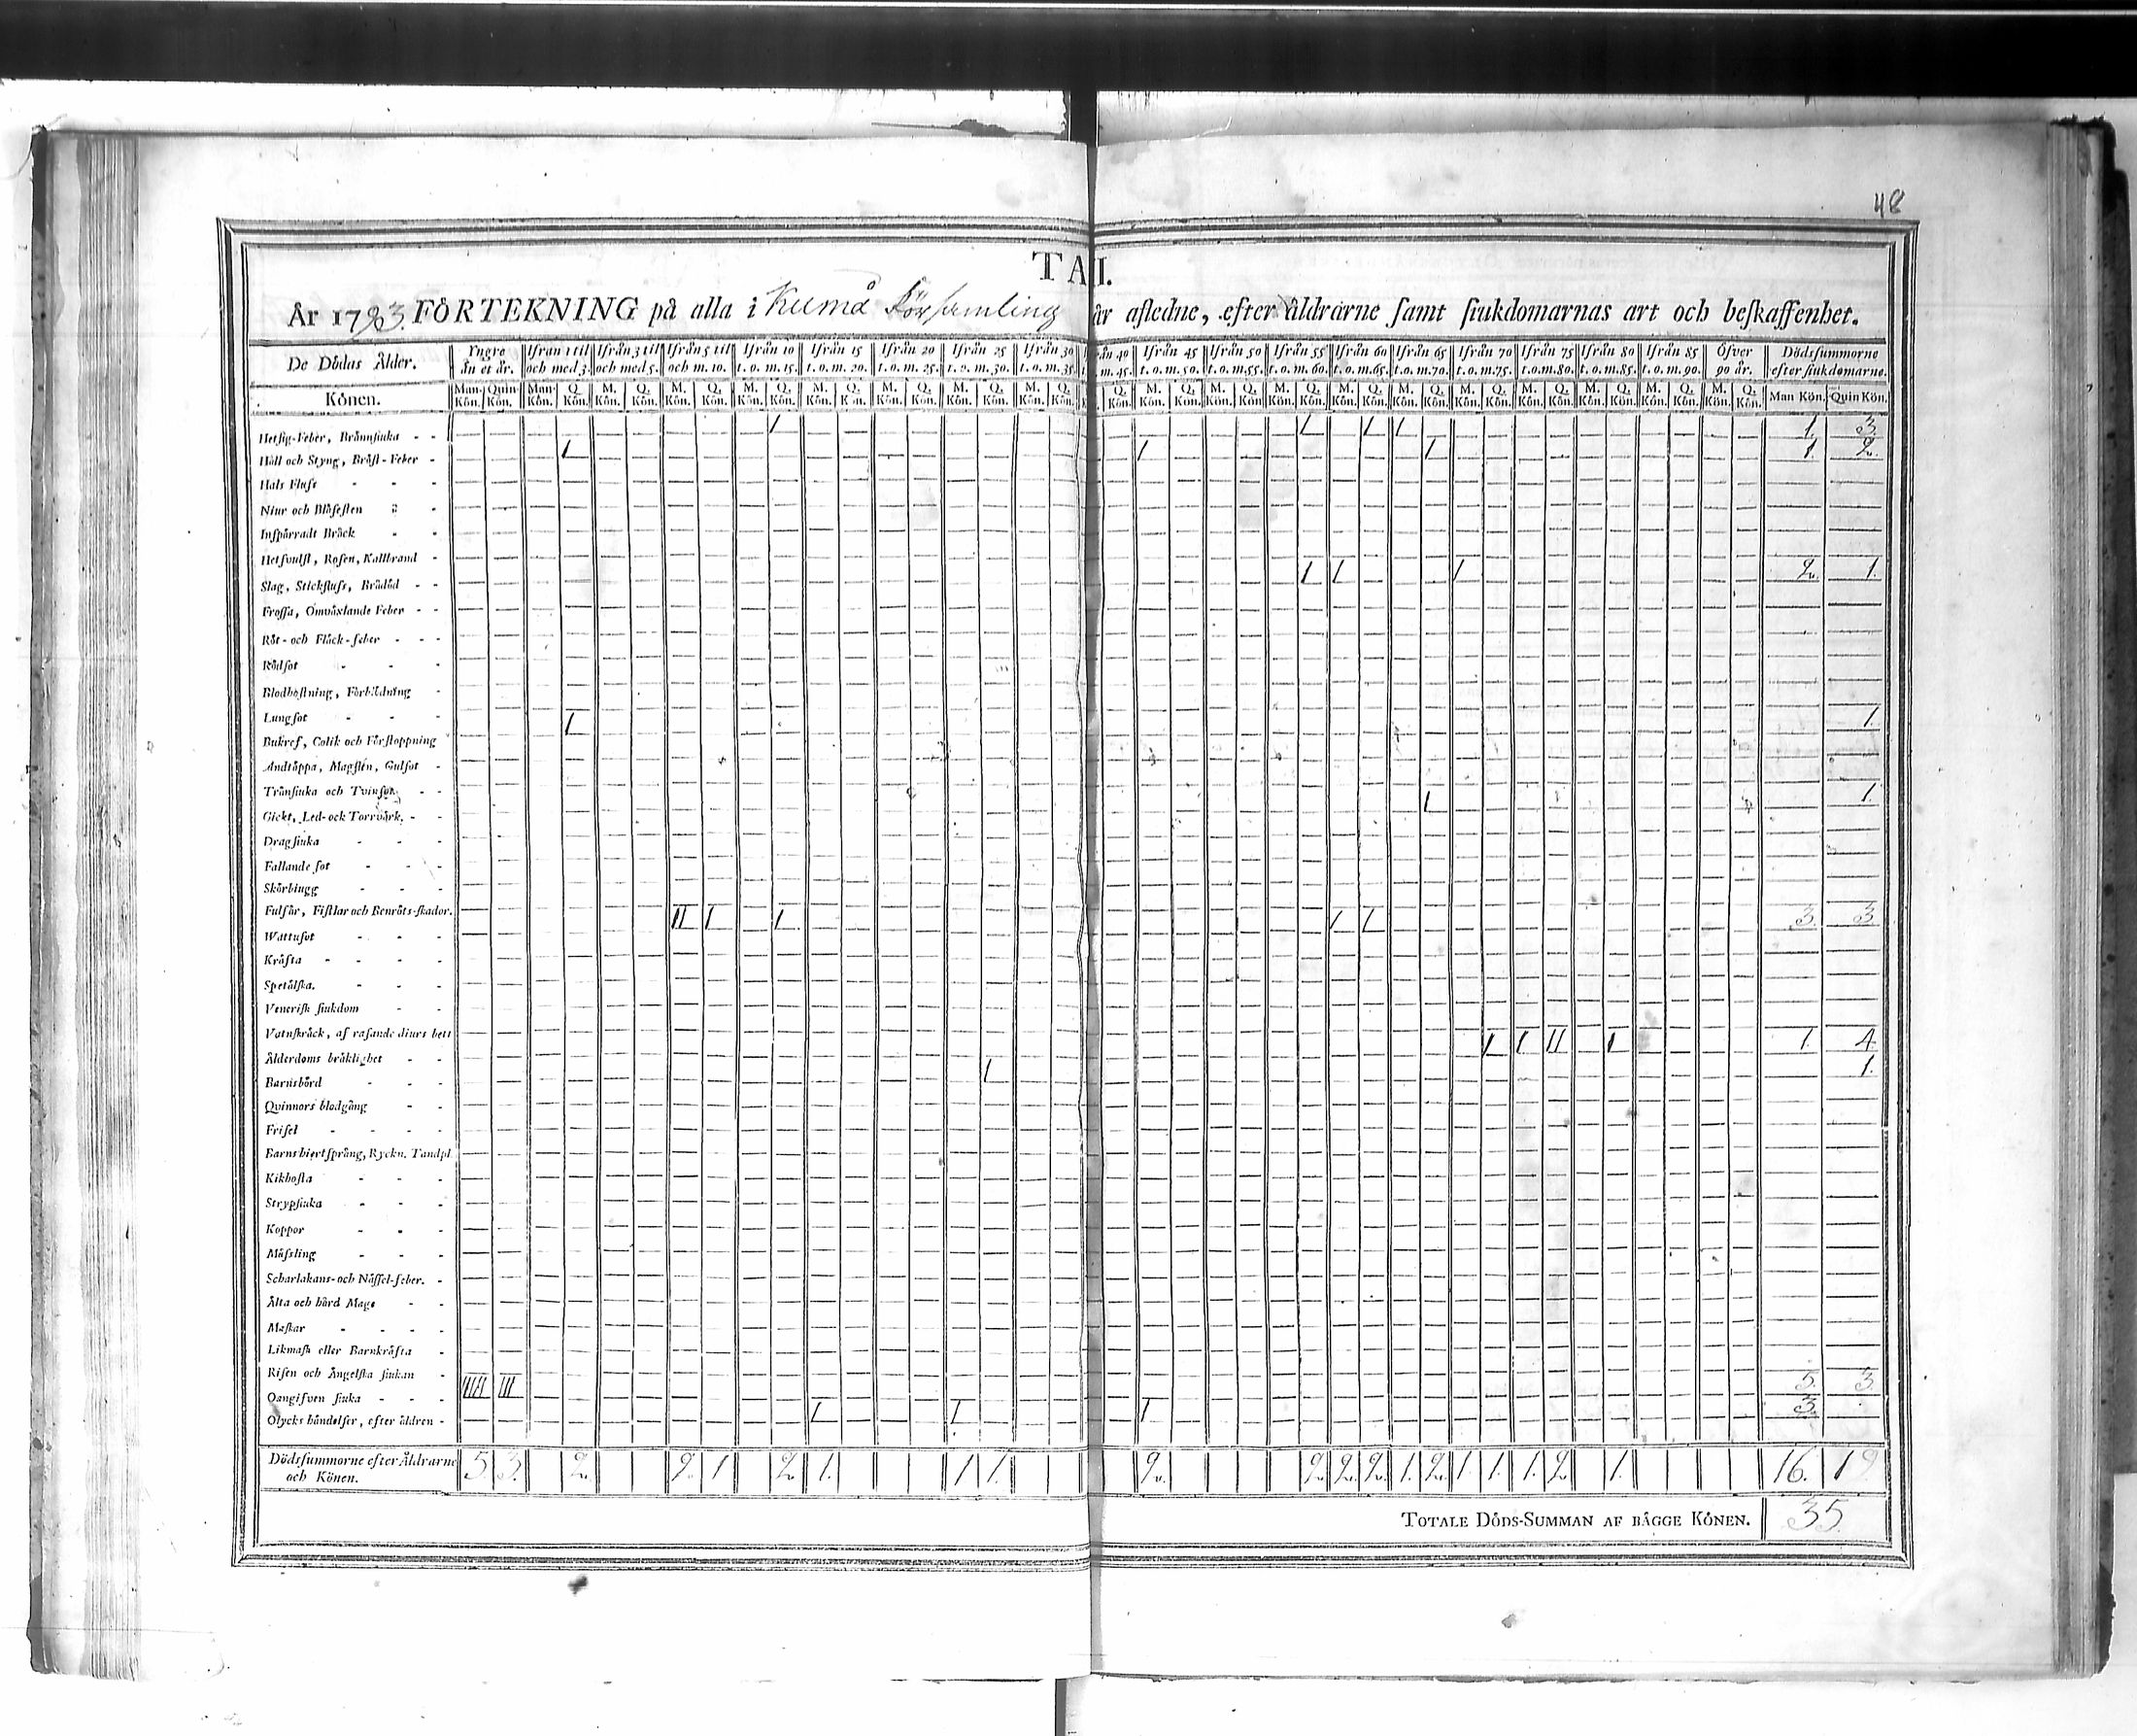 48
TA I.
År 1793. FÖRTEKNING på alla i Kumå Församling år afledne, efter åldrarne samt siukdomarnas art och beskaffenhet.
De Dödas Ålder. Yngre än et år. Ifrån 1 til och med 3. Ifrån 3 til och med 5. Ifrån 5 til och m. 10. Ifrån 10 t. o. m. 15. Ifrån 15 t. o. m. 20. Ifrån 20 t. o. m. 25. Ifrån 25 t. o. m. 30. Ifrån 30 t. o. m. 35. ån 40 m. 45. Ifrån 45 t. o. m. 50. Ifrån 50 t. o. m. 55. Ifrån 55 t. o. m. 60. Ifrån 60 t. o. m. 65. Ifrån 65 t. o. m. 70. Ifrån 70 t. o. m. 75. Ifrån 75 t. o. m. 80. Ifrån 80 t. o. m. 85. Ifrån 85 t. o. m. 90. Öfver 90 år. Dödssummorne efter siukdomarne.
Könen. Man Kön. Quin Kön. Man Kön. Q. Kön. M. Kön. Q. Kön. M. Kön. Q. Kön. M. Kön. Q. Kön. M. Kön. Q. Kön. M. Kön. Q. Kön. M. Kön. Q. Kön. M. Kön. Q. Kön. Q. Kön. M. Kön. Q. Kön. M. Kön. Q. Kön. M. Kön. Q. Kön. M. Kön. Q. Kön. M. Kön. Q. Kön. M. Kön. Q. Kön. M. Kön. Q. Kön. M. Kön. Q. Kön. M. Kön. Q. Kön. M. Kön. Q. Kön. Man Kön. Quin Kön.
Hetsig-Feber, Brännsiuka - - 1 1 1 1 1. 3.
Håll och Styng, Bröst-Feber - 1 1 1 1. 2.
Hals Fluss - - -
Niur och Blåsesten - -
Inspärradt Bråck - -
Hetsvulst, Rosen, Kallbrand -
Slag, Stickfluss, Brådöd - - 1 1 1 2. 1.
Frossa, Omväxlande Feber - -
Röt- och Fläck-feber - - -
Rödsot - - -
Blodhostning, Förbildning -
Lungsot - - - 1 1.
Bukref, Colik och Förstoppning
Andtäppa, Magsten, Gulsot -
Trånsiuka och Tvinsot - - 1 1.
Gickt, Led- och Torrvärk. - -
Dragsiuka - - -
Fallande sot - - -
Skörbiugg - - -
Fulsår, Fistlar och Benröts-skador. II 1 1 1 1 3. 3.
Wattusot - - -
Kräfta - - - -
Spetälska. - - -
Venerisk siukdom - -
Vatnskräck, af rasande diurs bett
Ålderdoms bräklighet - - 1 1 II 1 1. 4.
Barnsbörd - - - 1 1.
Qvinnors blodgång - -
Frisel - - - -
Barns hiertsprång, Ryckn. Tandpl
Kikhosta - - -
Strypsiuka - - -
Koppor - - -
Mässling - - -
Scharlakans- och Nässel-feber. -
Älta och hård Mage - -
Maskar - - - -
Likmask eller Barnkräfta -
Risen och Ängelska siukan -
Oangifven siuka - - - IIIII III 5. 3.
Olycks händelser, efter åldren - 1 1 1 3.
Dödssummorne efter Åldrarne och Könen. 5 3. 2. 2. 1 2. 1. 1 1. 2. 2. 2. 2. 1. 2. 1. 1. 1. 2. 1. 16. 19
TOTALE DÖDS-SUMMAN AF BÅGGE KÖNEN. 35.